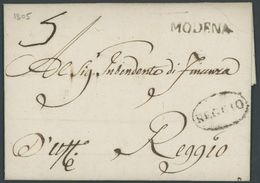 1805
5
MODENA
Al Sig.r Intendente di Finanza
REGGIO
D'uff.
Reggio